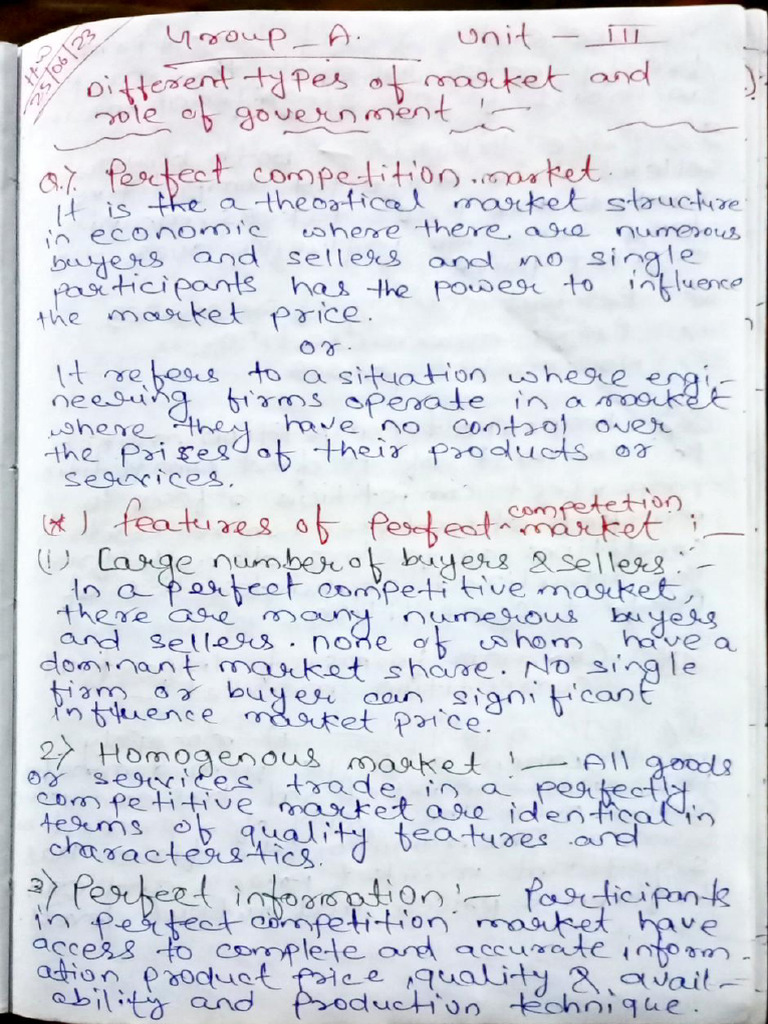 H.W
25/06/23
Group - A. Unit - III
Different types of market and
role of government :-
Q.7. Perfect competition market.
It is the a theortical market structure
in economic where there are numerous
buyers and sellers and no single
participants has the power to influence
the market price.
or.
It refers to a situation where engi-
neering firms operate in a market
where they have no control over
the prises of their products or
services.
(*) features of Perfect competetion market :-
(1) Large number of buyers & sellers :-
In a perfect competitive market,
there are many numerous buyers
and sellers. none of whom have a
dominant market share. No single
firm or buyer can significant
influence market price.
2.) Homogenous market :- All goods
or services trade in a perfectly
competitive market are identical in
terms of quality features and
characterstics.
3) Perfect information :- Participants
in perfect competition market have
access to complete and accurate inform
ation product price, quality & avail-
ability and production technique.